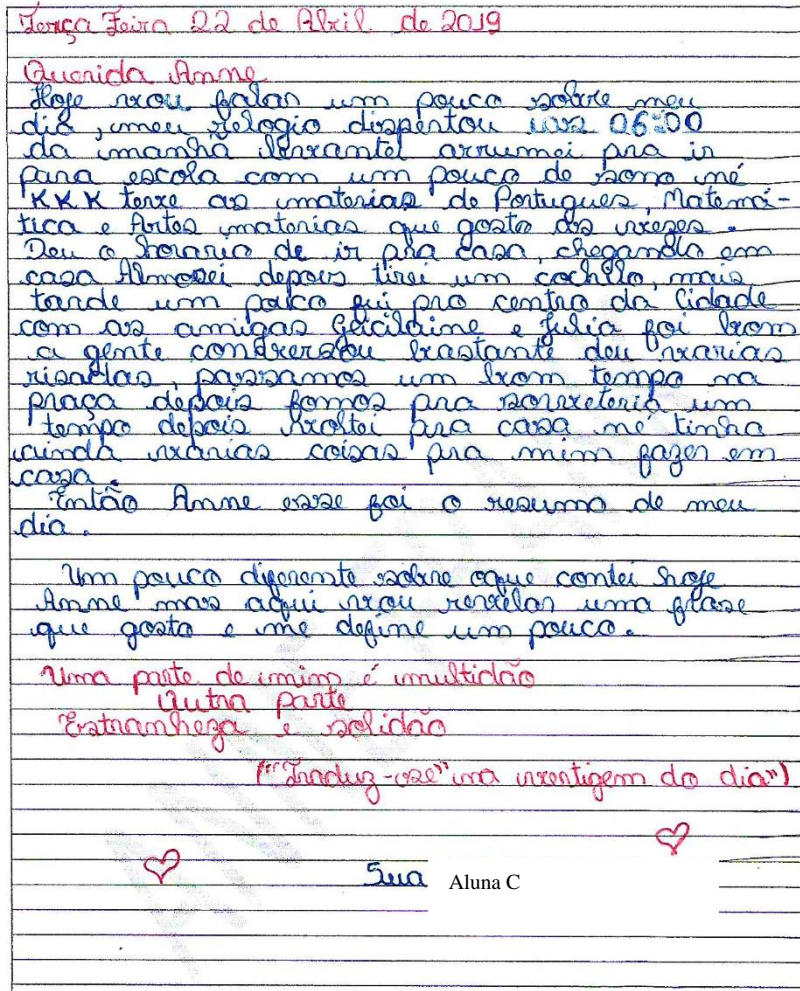 Terça Feira 22 de Abril de 2019
Querida Anne
Hoje vou falar um pouco sobre meu
dia, meu relogio dispertou as 06:00
da manhã levantei arrumei pra ir
para escola com um pouco de sono né
KKK teve as materias de Portugues, Matemá-
tica e Artes materias que gosto as vezes.
Deu o horario de ir pra casa, chegando em
casa Almosei depois tirei um cochilo, mais
tarde um pouco fui pro centro da Cidade
com as amigas Geicilaine e Julia foi bom
a gente conversou bastante deu varias
risadas, passamos um bom tempo na
praça depois fomos pra sorveteria um
tempo depois voltei pra casa né tinha
ainda varias coisas pra mim fazer em
casa.
Então Anne esse foi o resumo de meu
dia.
Um pouco diferente sobre oque contei hoje
Anne mas aqui vou revelar uma frase
que gosto e me define um pouco.
Uma parte de mim é multidão
Outra parte
Estranheza e solidão
("Traduz-se" na vertigem do dia")
Sua Aluna C